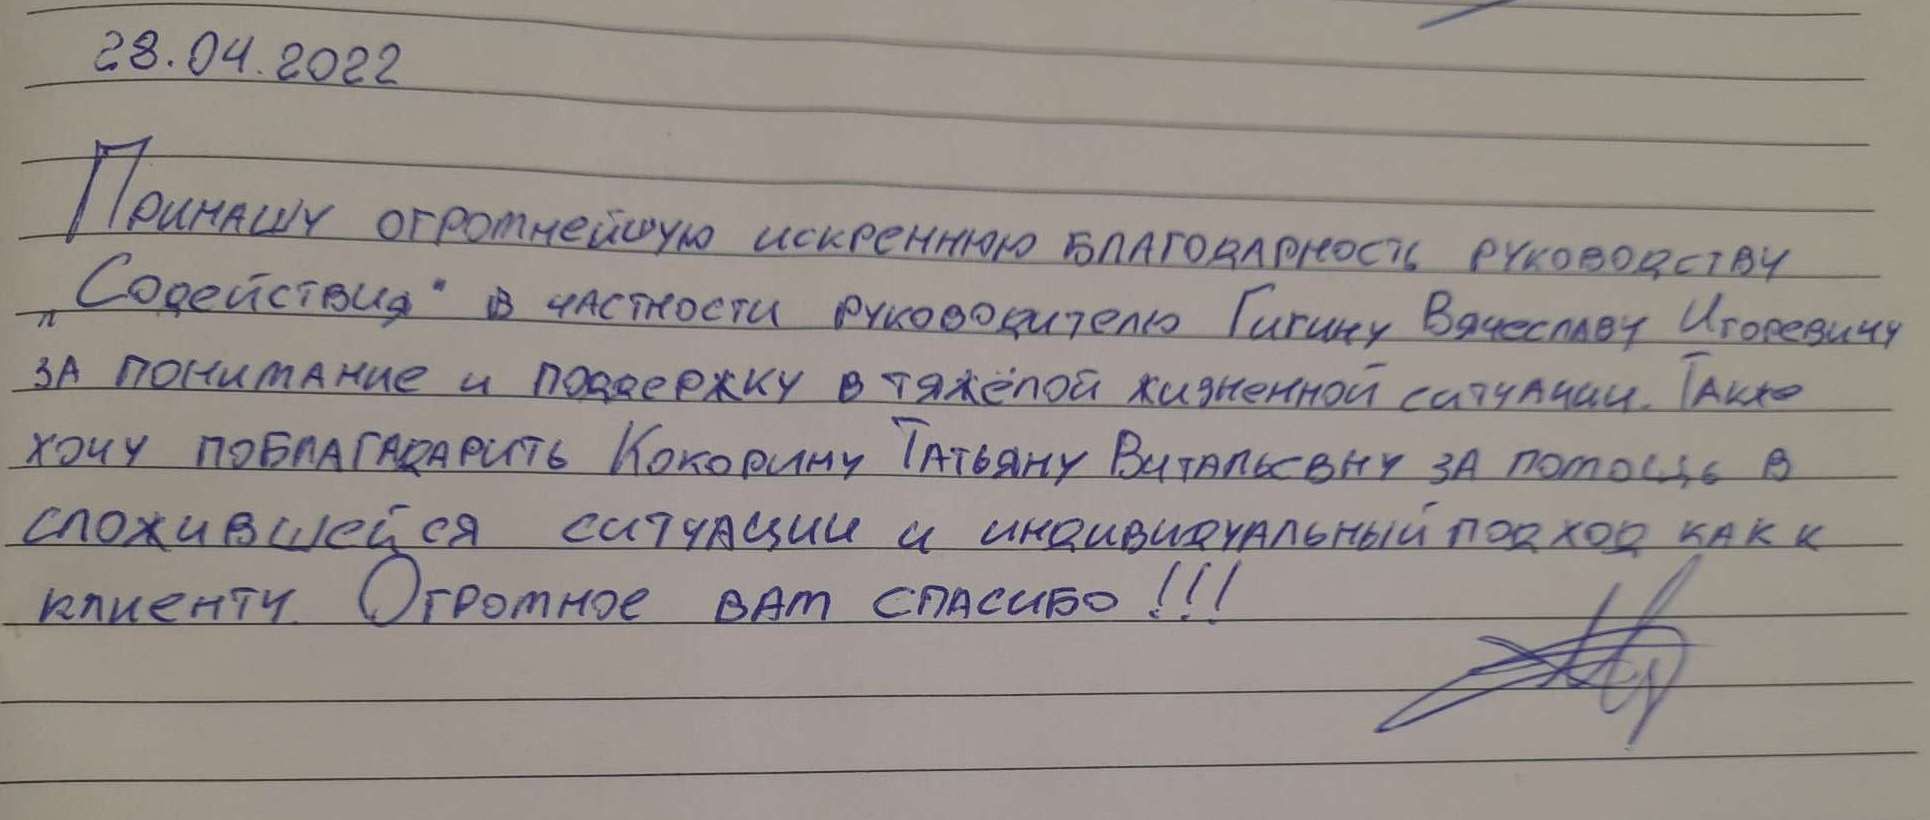 28.04.2022
Принашу огромнейшую искреннюю благодарность руководству
„Содействия" в частности руководителю Гигину Вячеславу Игоревичу
за понимание и поддержку в тяжёлой жизненной ситуации. Также
хочу поблагадарить Кокорину Татьяну Витальевну за помощь в
сложившейся ситуации и индивидуальный подход как к
клиенту. Огромное вам спасибо!!!